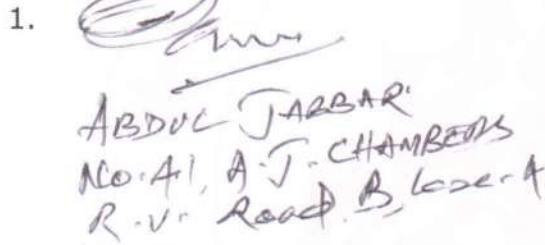 1.
ABDUL JABBAR
No. 41, A.J. CHAMBERS
R.V. Road, B'lore-4